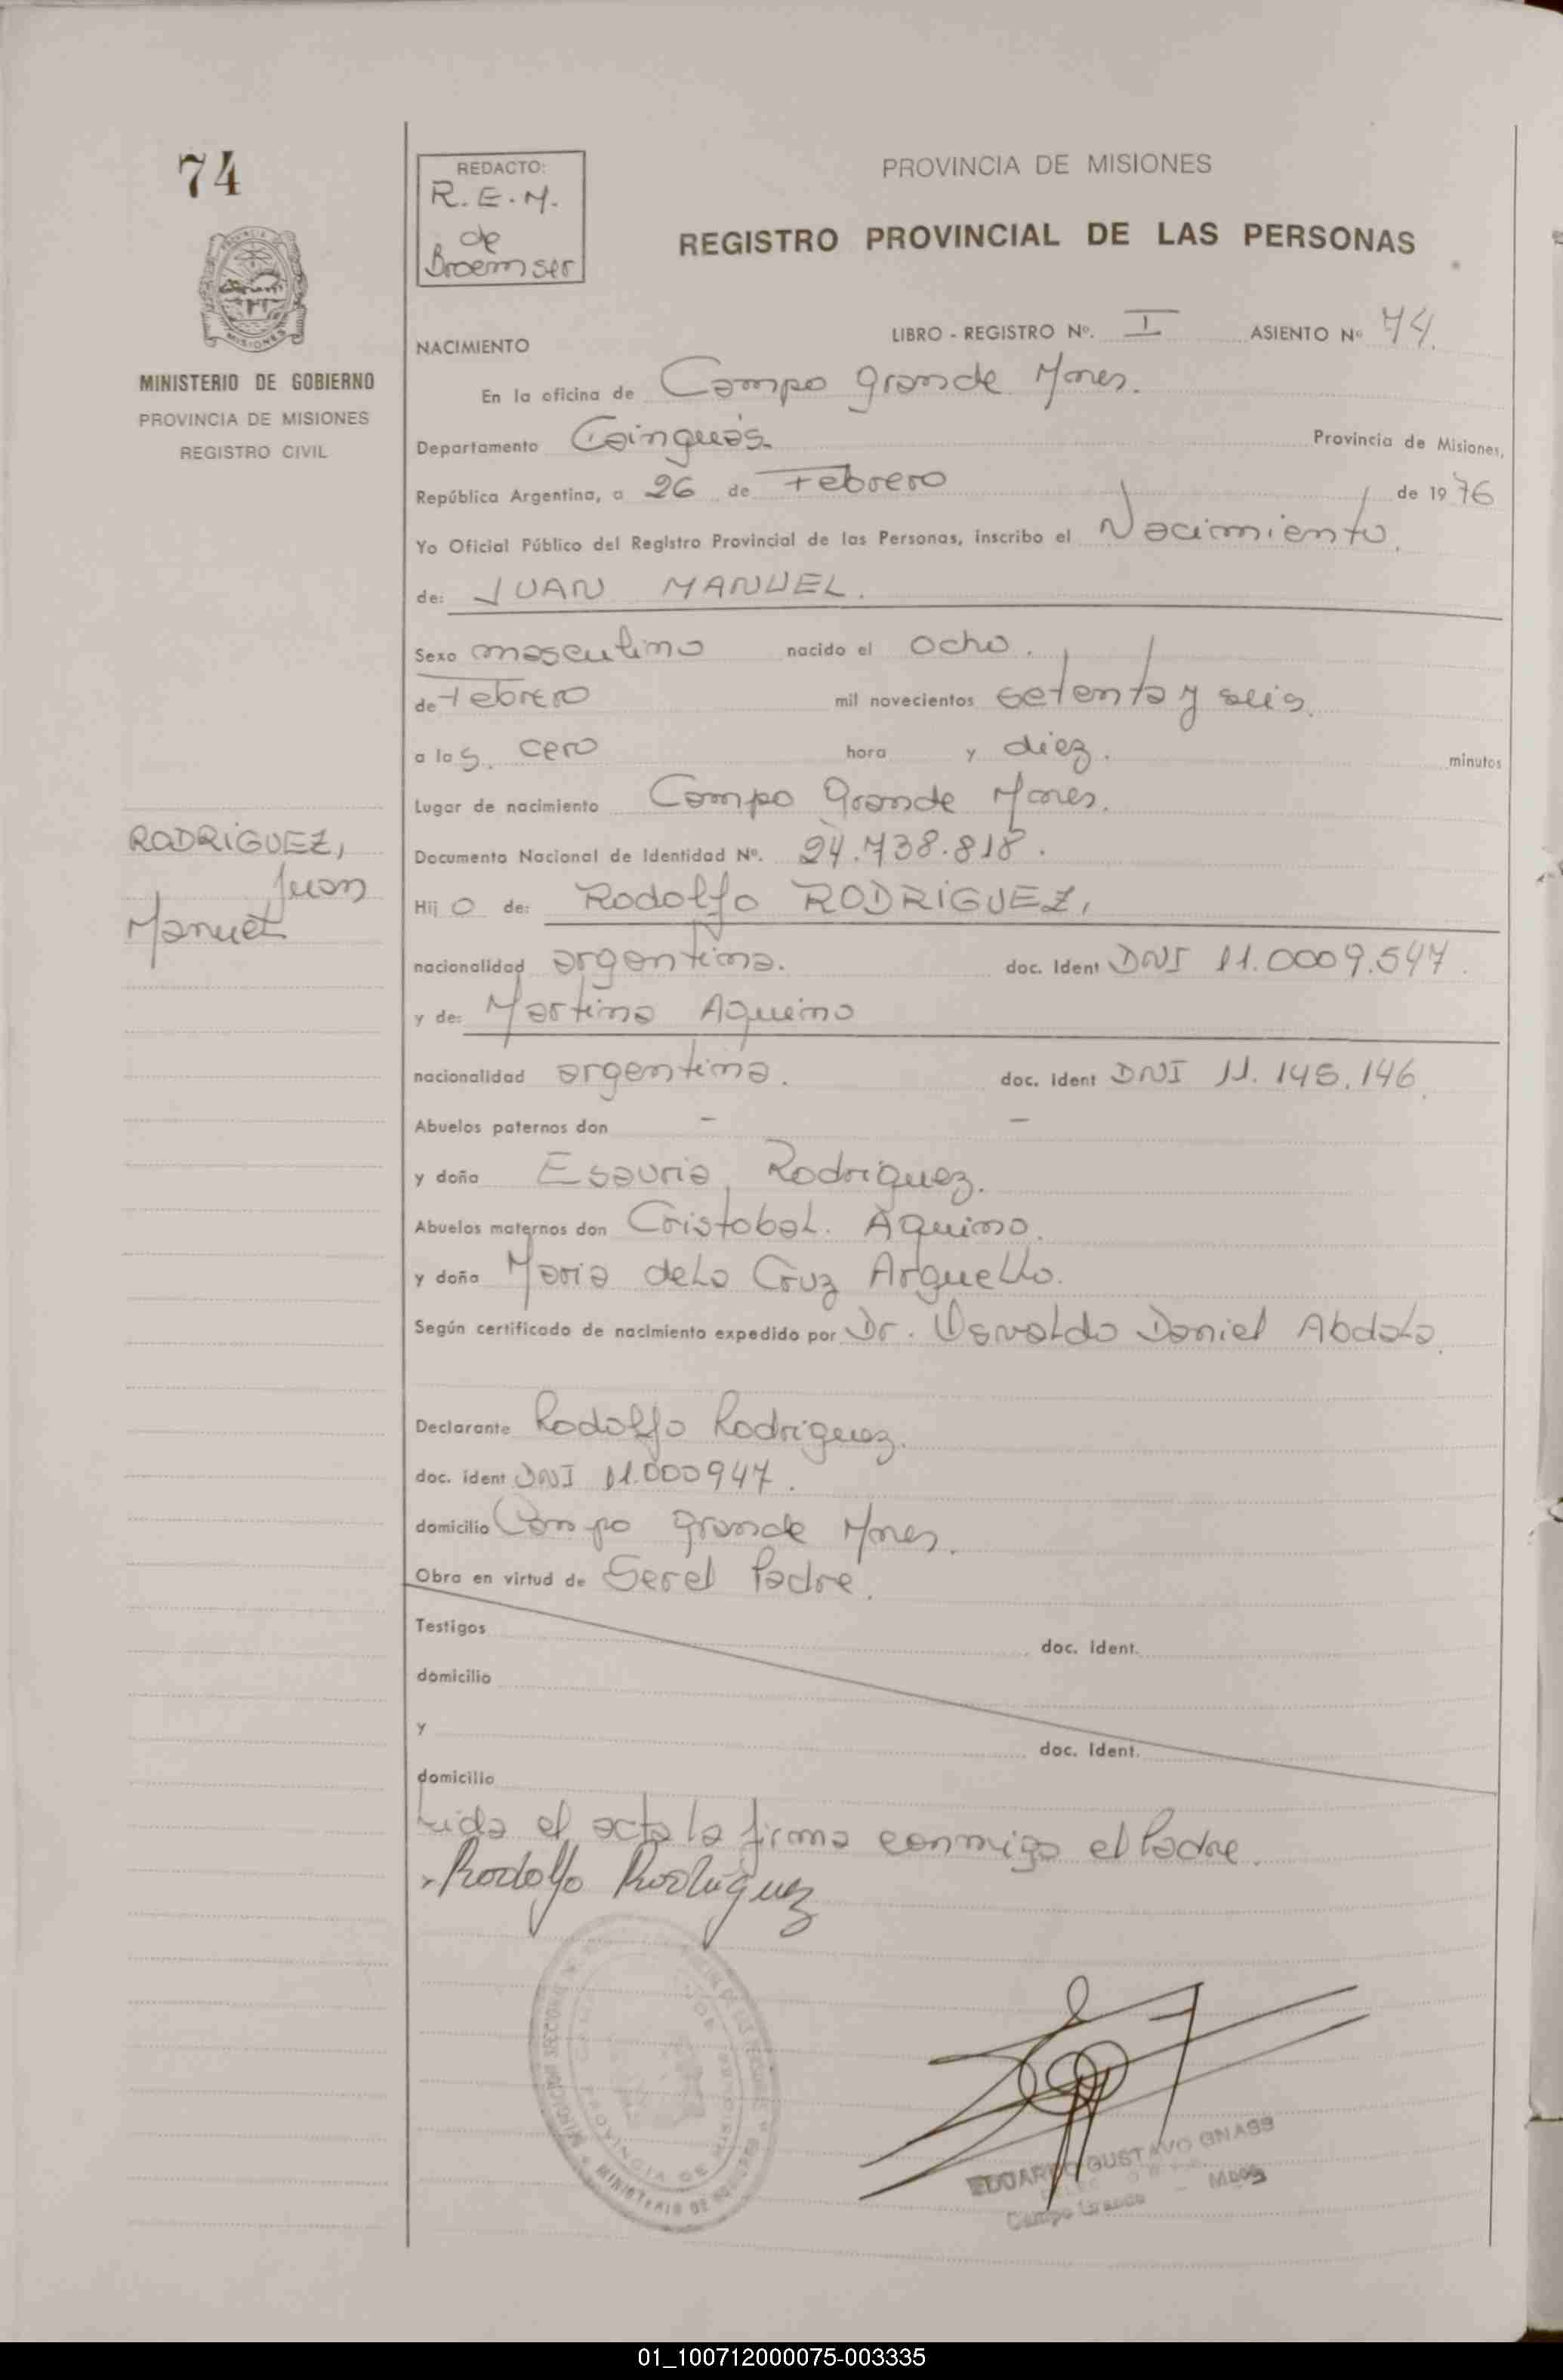 74
MINISTERIO DE GOBIERNO
PROVINCIA DE MISIONES
REGISTRO CIVIL
RODRIGUEZ,
Juan
Manuel
REDACTO:
R.E.M.
de
Broemser
PROVINCIA DE MISIONES
REGISTRO PROVINCIAL DE LAS PERSONAS
LIBRO - REGISTRO Nº. I ASIENTO Nº 74.
NACIMIENTO
En la oficina de Campo Grande Mnes.
Departamento Cainguás Provincia de Misiones,
República Argentina, a 26 de Febrero de 1976
Yo Oficial Público del Registro Provincial de las Personas, inscribo el Nacimiento.
de: JUAN MANUEL.
Sexo masculino nacido el ocho.
de Febrero mil novecientos setenta y seis.
a las. cero hora y diez. minutos
Lugar de nacimiento Campo Grande Mnes.
Documento Nacional de Identidad Nº. 24.738.818.
Hijo de: Rodolfo RODRIGUEZ,
nacionalidad argentina. doc. Ident DNI 11.0009.547.
y de: Martina Aquino
nacionalidad argentina. doc. Ident DNI 11.145.146.
Abuelos paternos don - -
y doña Esauria Rodriguez.
Abuelos maternos don Cristobal. Aquino.
y doña Maria dela Cruz Arguello.
Según certificado de nacimiento expedido por Dr. Osvaldo Daniel Abdala.
Declarante Rodolfo Rodriguez.
doc. ident DNI 11.000947.
domicilio Campo Grande Mnes.
Obra en virtud de Serel Padre.
Testigos doc. ident.
domicilio
y doc. Ident.
domicilio
Leida el acta la firma conmigo el Padre.
Rodolfo Rodriguez
PROVINCIA DE MISIONES
MINISTERIO DE
EDUARDO GUSTAVO GNASS
Campo Grande - Mnes
01_100712000075-003335